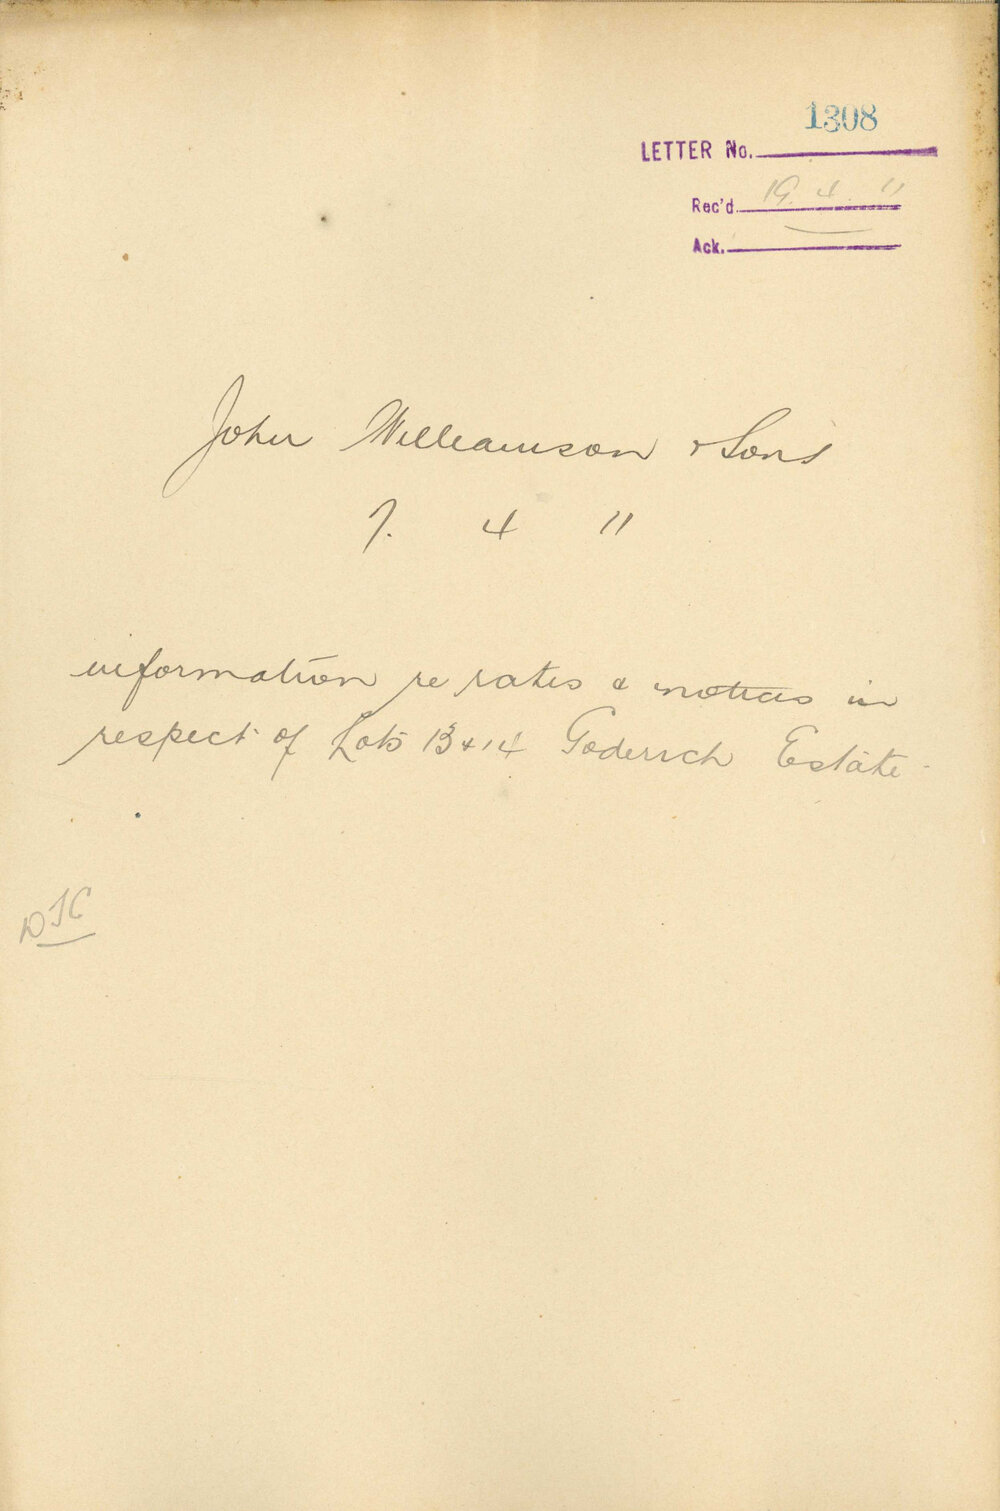 1308
LETTER No.
Rec'd 19. 4. 11
Ack.
John Williamson & Sons
7. 4 11
information re rates & notices in
respect of Lots 13 & 14 Goderich Estate